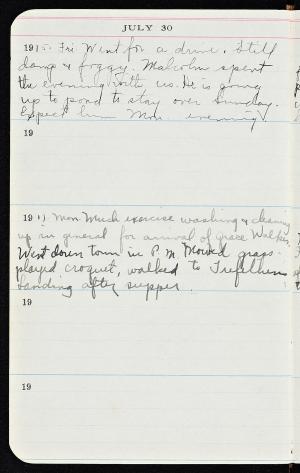 JULY 30
1915. Fri Went for a drive. Still
damp & foggy. Malcolm spent
the evening with us. He is going
up to pond to stay over Sunday.
Expect him Mon. evening
19
1917 Mon Much exercise washing & cleaning
up in general for arrival of Grace Walker.
Went down town in P.M. Mowed grass.
played croquet, walked to Trefethen
landing after supper
19
19